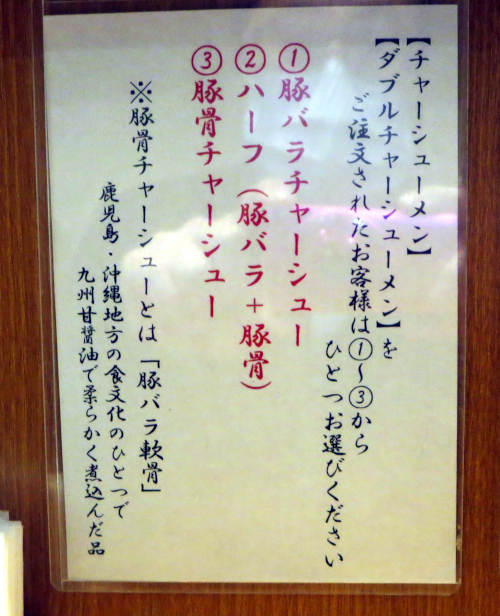 【チャーシューメン】
【ダブルチャーシューメン】を
ご注文されたお客様は①～③から
ひとつお選びください
①豚バラチャーシュー
②ハーフ（豚バラ＋豚骨）
③豚骨チャーシュー
※豚骨チャーシューとは「豚バラ軟骨」
鹿児島・沖縄地方の食文化のひとつで
九州甘醤油で柔らかく煮込んだ品